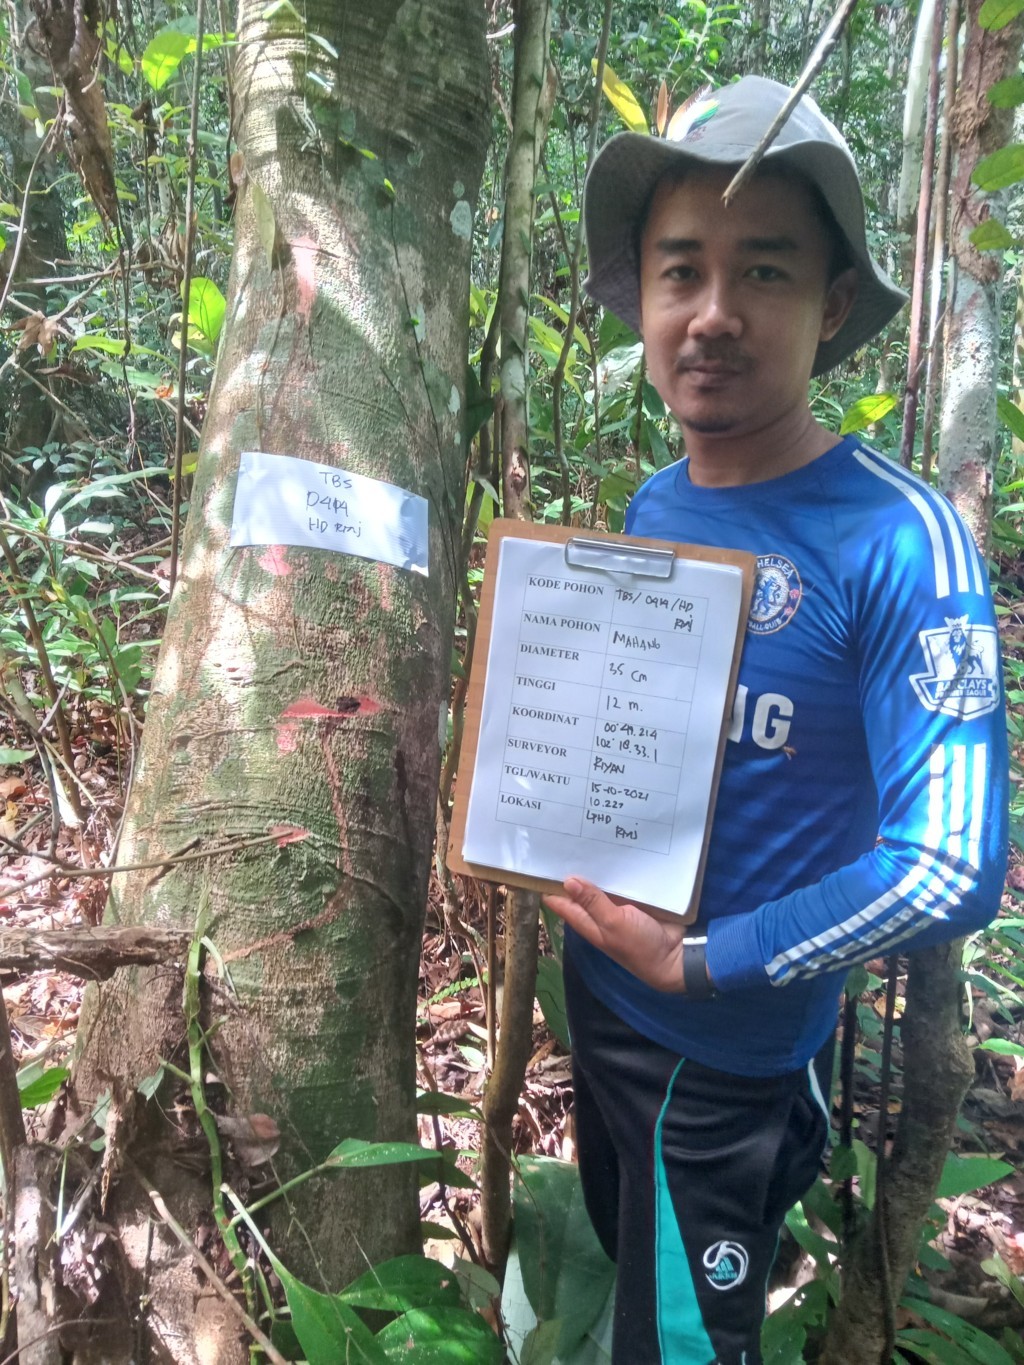 TBS
0414
HD RMJ
KODE POHON TBS/0414/HD
RMJ
NAMA POHON MAHANG
DIAMETER 35 cm
TINGGI 12 m.
KOORDINAT 00°49.214
102°18.33.1
SURVEYOR RIYAN
TGL/WAKTU 15-10-2021
10.227
LOKASI LPHD
RMJ
CHELSEA
FOOTBALL CLUB
NG
BARCLAYS
PREMIER LEAGUE